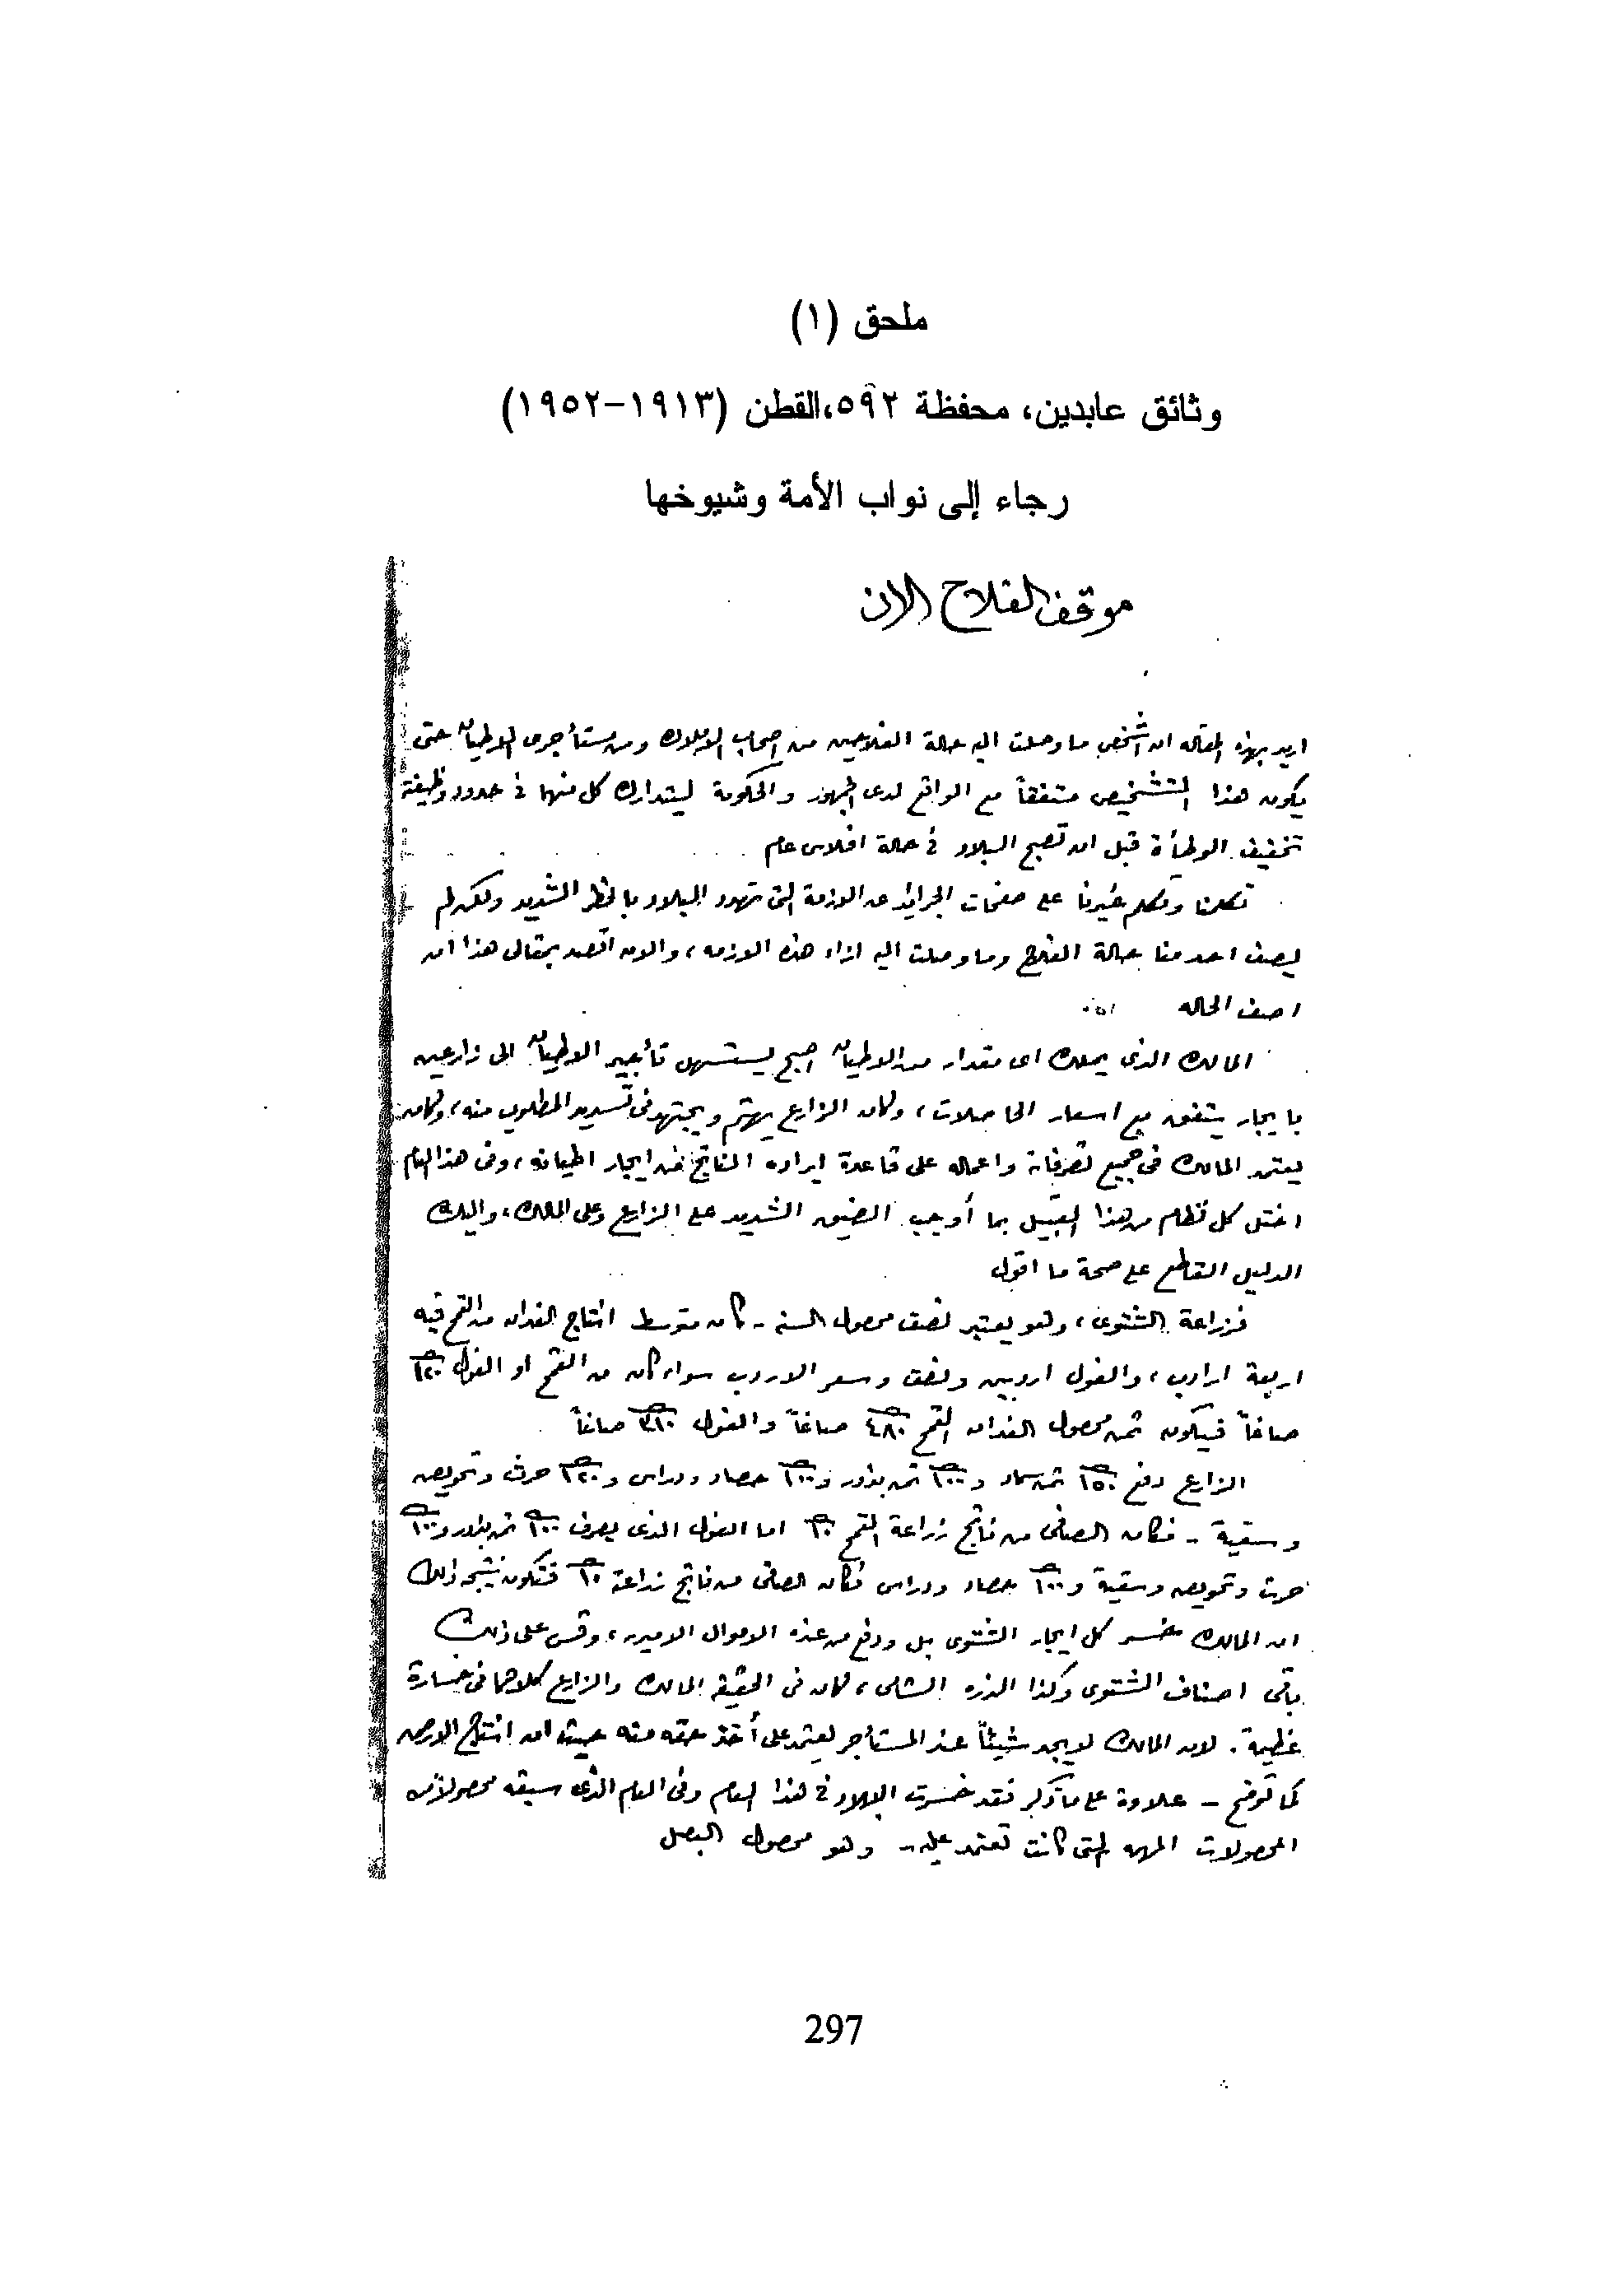 ملحق (١)
وثائق عابدين، محفظة ٥٩٢،القطن (١٩١٣-١٩٥٢)
رجاء إلى نواب الأمة وشيوخها
موقف الفلاح الان
اريد بهذه المقاله ان اشخص ما وصلت اليه حالة الفلاحين من اصحاب الاملاك ومن مستأجرى الاطيان حتى
يكون هذا التشخيص متفقاً مع الواقع لدى الجمهور والحكومة ليتدارك كل منهما فى حدود وظيفته
تخفيف الوطأة قبل ان تصبح البلاد فى حالة افلاس عام
تكلمنا وتكلم غيرنا على صفحات الجرائد عن الازمة التى تهدد البلاد بالخطر الشديد ولكن لم
يصف احد منا حالة الفلاح وما وصلت اليه ازاء هذه الازمه، والان اقصد بمقالى هذا ان
اصف الحاله
المالك الذى يملك اى مقدار من الاطيان اصبح يستسهل تأجير الاطيان الى زارعين
بايجار يتفق مع اسعار الحاصلات، وكان الزارع يهتم ويجتهد فى تسديد المطلوب منه، وكان
يعتمد المالك فى جميع تصرفاته واعماله على قاعدة ايراده الناتج من ايجار اطيانه، وفى هذا العام
اختل كل نظام من هذا القبيل بما أوجب الضيق الشديد على الزارع وعلى المالك، واليك
الدليل القاطع على صحة ما اقول
فزراعة الشتوى، وهو يعتبر نصف محصول السنه - كان متوسط انتاج الفدان من القمح فيه
اربعة ارادب، والفول اردبين ونصف وسعر الاردب سواء كان من القمح او الفول ١٢٠
صاغاً فيكون ثمن محصول الفدان القمح ٤٨٠ صاغاً والفول صاغاً
الزارع دفع ١٥٠ ثمن سماد و ١٠٠ ثمن بذور و ١٠٠ حصاد ودراس و ١٢٠ حرث وتحويض
وسقية - فكان الصافى من ناتج زراعة القمح ١٠ اما الفول الذى يصرف ١٠٠ ثمن بذور و ١٠٠
حرث وتحويض وسقية و ١٠٠ حصاد ودراس فكان الصافى من ناتج زراعة ١٠ فتكون نتيجة ذلك
ان المالك خسر كل ايجار الشتوى بل ودفع من عنده الاموال الاميريه، وقس على ذلك
باقى اصناف الشتوى وكذا الذره الشامى، فكان فى الحقيقة المالك والزارع كلاهما فى خسارة
عظيمة. لان المالك لا يجد شيئاً عند المستأجر يعتمد على أخذ حقه منه حيث ان انتاج الارض
كما توضح - علاوة على ما ذكر فقد خسرت البلاد فى هذا العام وفى العام الذى سبقه محصولاً من
المحصولات المهمه التى كانت تعتمد عليه - وهو محصول البصل
297